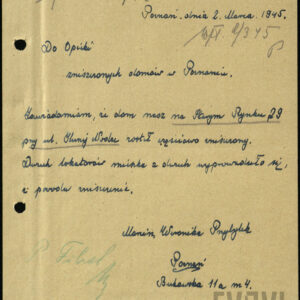 Poznań, dnia 2. Marca 1945.
Do Opieki
zniszczonych domów w Poznaniu.
Zawiadamiam, że dom nasz na Starym Rynku 29
przy ul. Wodnej został częściowo zniszczony.
Dwóch lokatorów mieszka a dwóch wyprowadziło się
z powodu zniszczenia.
Maria Weronika
Poznań
Bukowska 11a m 4.